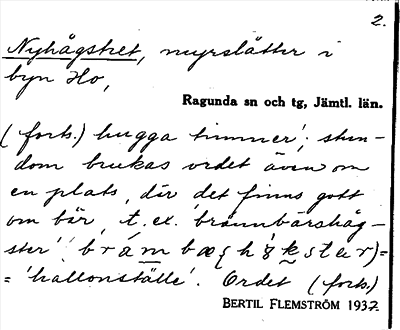 2.
Nyhågstret, myrslåtter i
byn Ho,
Ragunda sn och tg, Jämtl. län.
(forts.) hugga timmer'; stun-
dom brukas ordet även om
en plats, där det finns gott
om bär, t. ex. 'brännbärshåg-
ster'
= 'hallonställe'. Ordet (forts.)
BERTIL FLEMSTRÖM 1932.